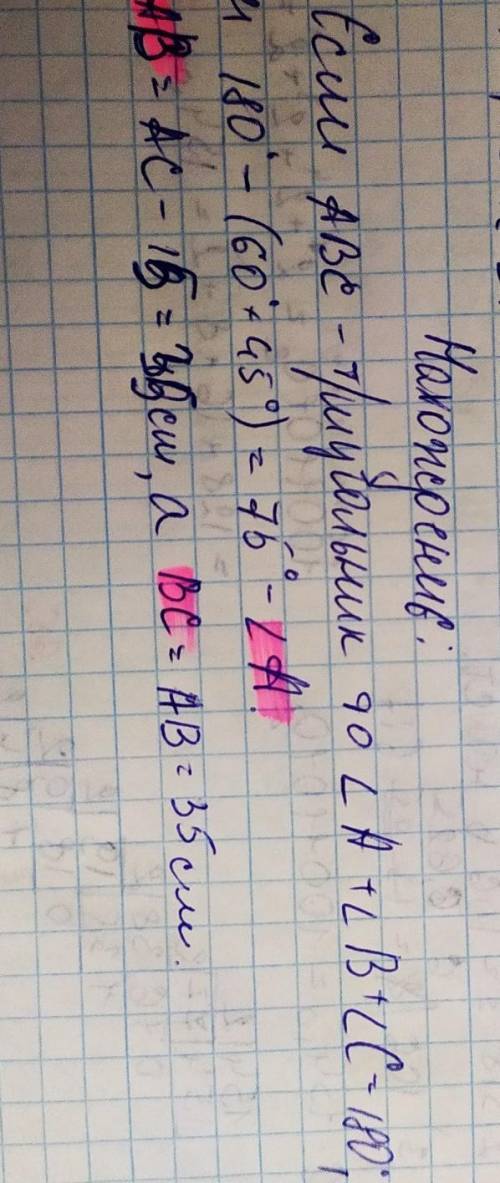 Нахождение:
Если ABC - т/угольник то ∠A+∠B+∠C=180°,
и 180° - (60°+45°) = 75° - ∠A.
AB = AC - 15 = 35см, а BC = AB = 35см.